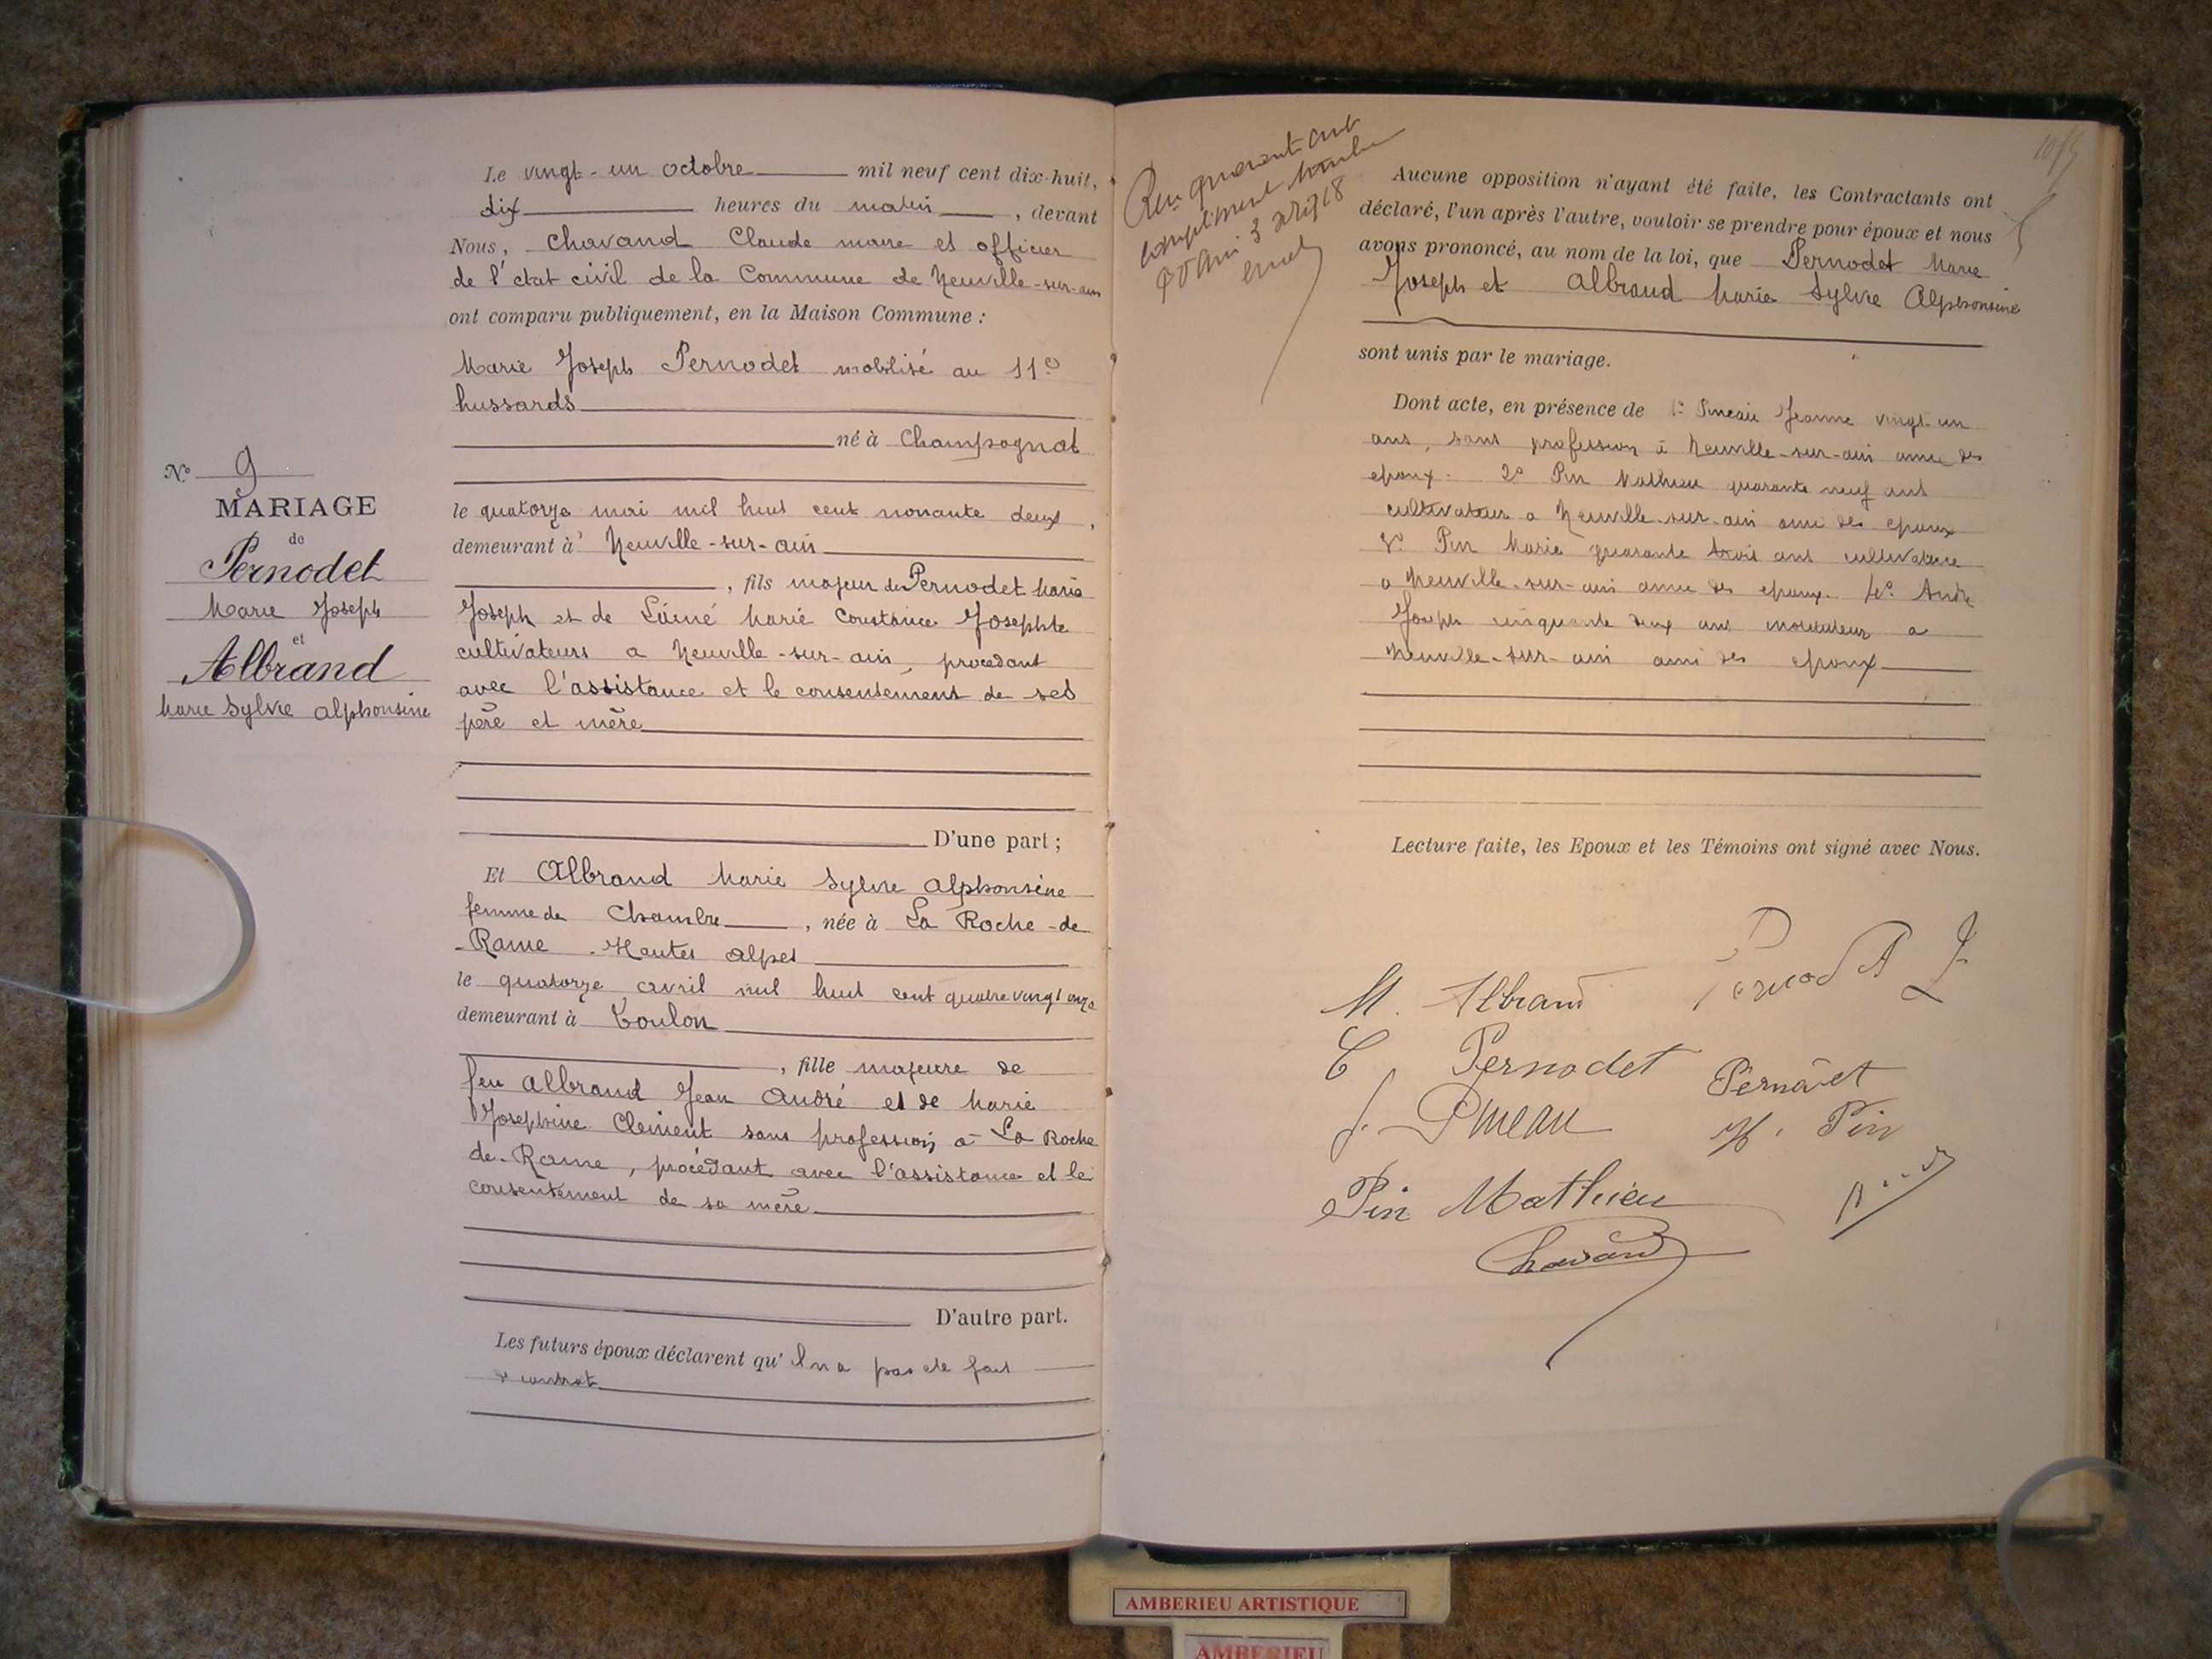 Le vingt-un octobre mil neuf cent dix-huit,
dix heures du matin, devant
Nous, Chavand Claude maire et officier
de l'état civil de la Commune de Neuville-sur-ain
ont comparu publiquement, en la Maison Commune :
Marie Joseph Pernodet mobilisé au 11e
hussards
né à Champagnat
le quatorze mai mil huit cent nonante deux,
demeurant à Neuville-sur-ain
, fils majeur de Pernodet Marie
Joseph et de Lainé Marie Constance Josephte
cultivateurs a Neuville-sur-ain, procedant
avec l'assistance et le consentement de ses
père et mère
D'une part ;
N° 9
MARIAGE
de
Pernodet
Marie Joseph
et
Albrand
Marie Sylvie Alphonsine
Et Albrand Marie Sylvie Alphonsine
femme de Chambre, née à La Roche-de
-Rame. Hautes Alpes
le quatorze avril mil huit cent quatre vingt onze
demeurant à Toulon
, fille majeure de
feu Albrand Jean André et de Marie
Josephine Clement sans profession, à La Roche
de-Rame, procédant avec l'assistance et le
consentement de sa mère
D'autre part.
Les futurs époux déclarent qu'il n'a pas été fait
de contrat
quarante
Aucune opposition n'ayant été faite, les Contractants ont
déclaré, l'un après l'autre, vouloir se prendre pour époux et nous
avons prononcé, au nom de la loi, que Pernodet Marie
Joseph et Albrand Marie Sylvie Alphonsine
sont unis par le mariage.
Dont acte, en présence de 1° Pineau Jeanne vingt-un
ans, sans profession à Neuville-sur-ain amie des
epoux. 2° Pin Mathieu quarante neuf ans
cultivateur a Neuville-sur-ain ami des epoux
3° Pin Marie quarante trois ans cultivatrice
a Neuville-sur-ain amie des epoux. 4° André
Joseph cinquante deux ans a
Neuville-sur-ain ami des epoux
Lecture faite, les Epoux et les Témoins ont signé avec Nous.
M. Albrand
C Pernodet
J. Pineau
M. Pin
Pin Mathieu
Chavand
AMBERIEU ARTISTIQUE
AMBERIEU